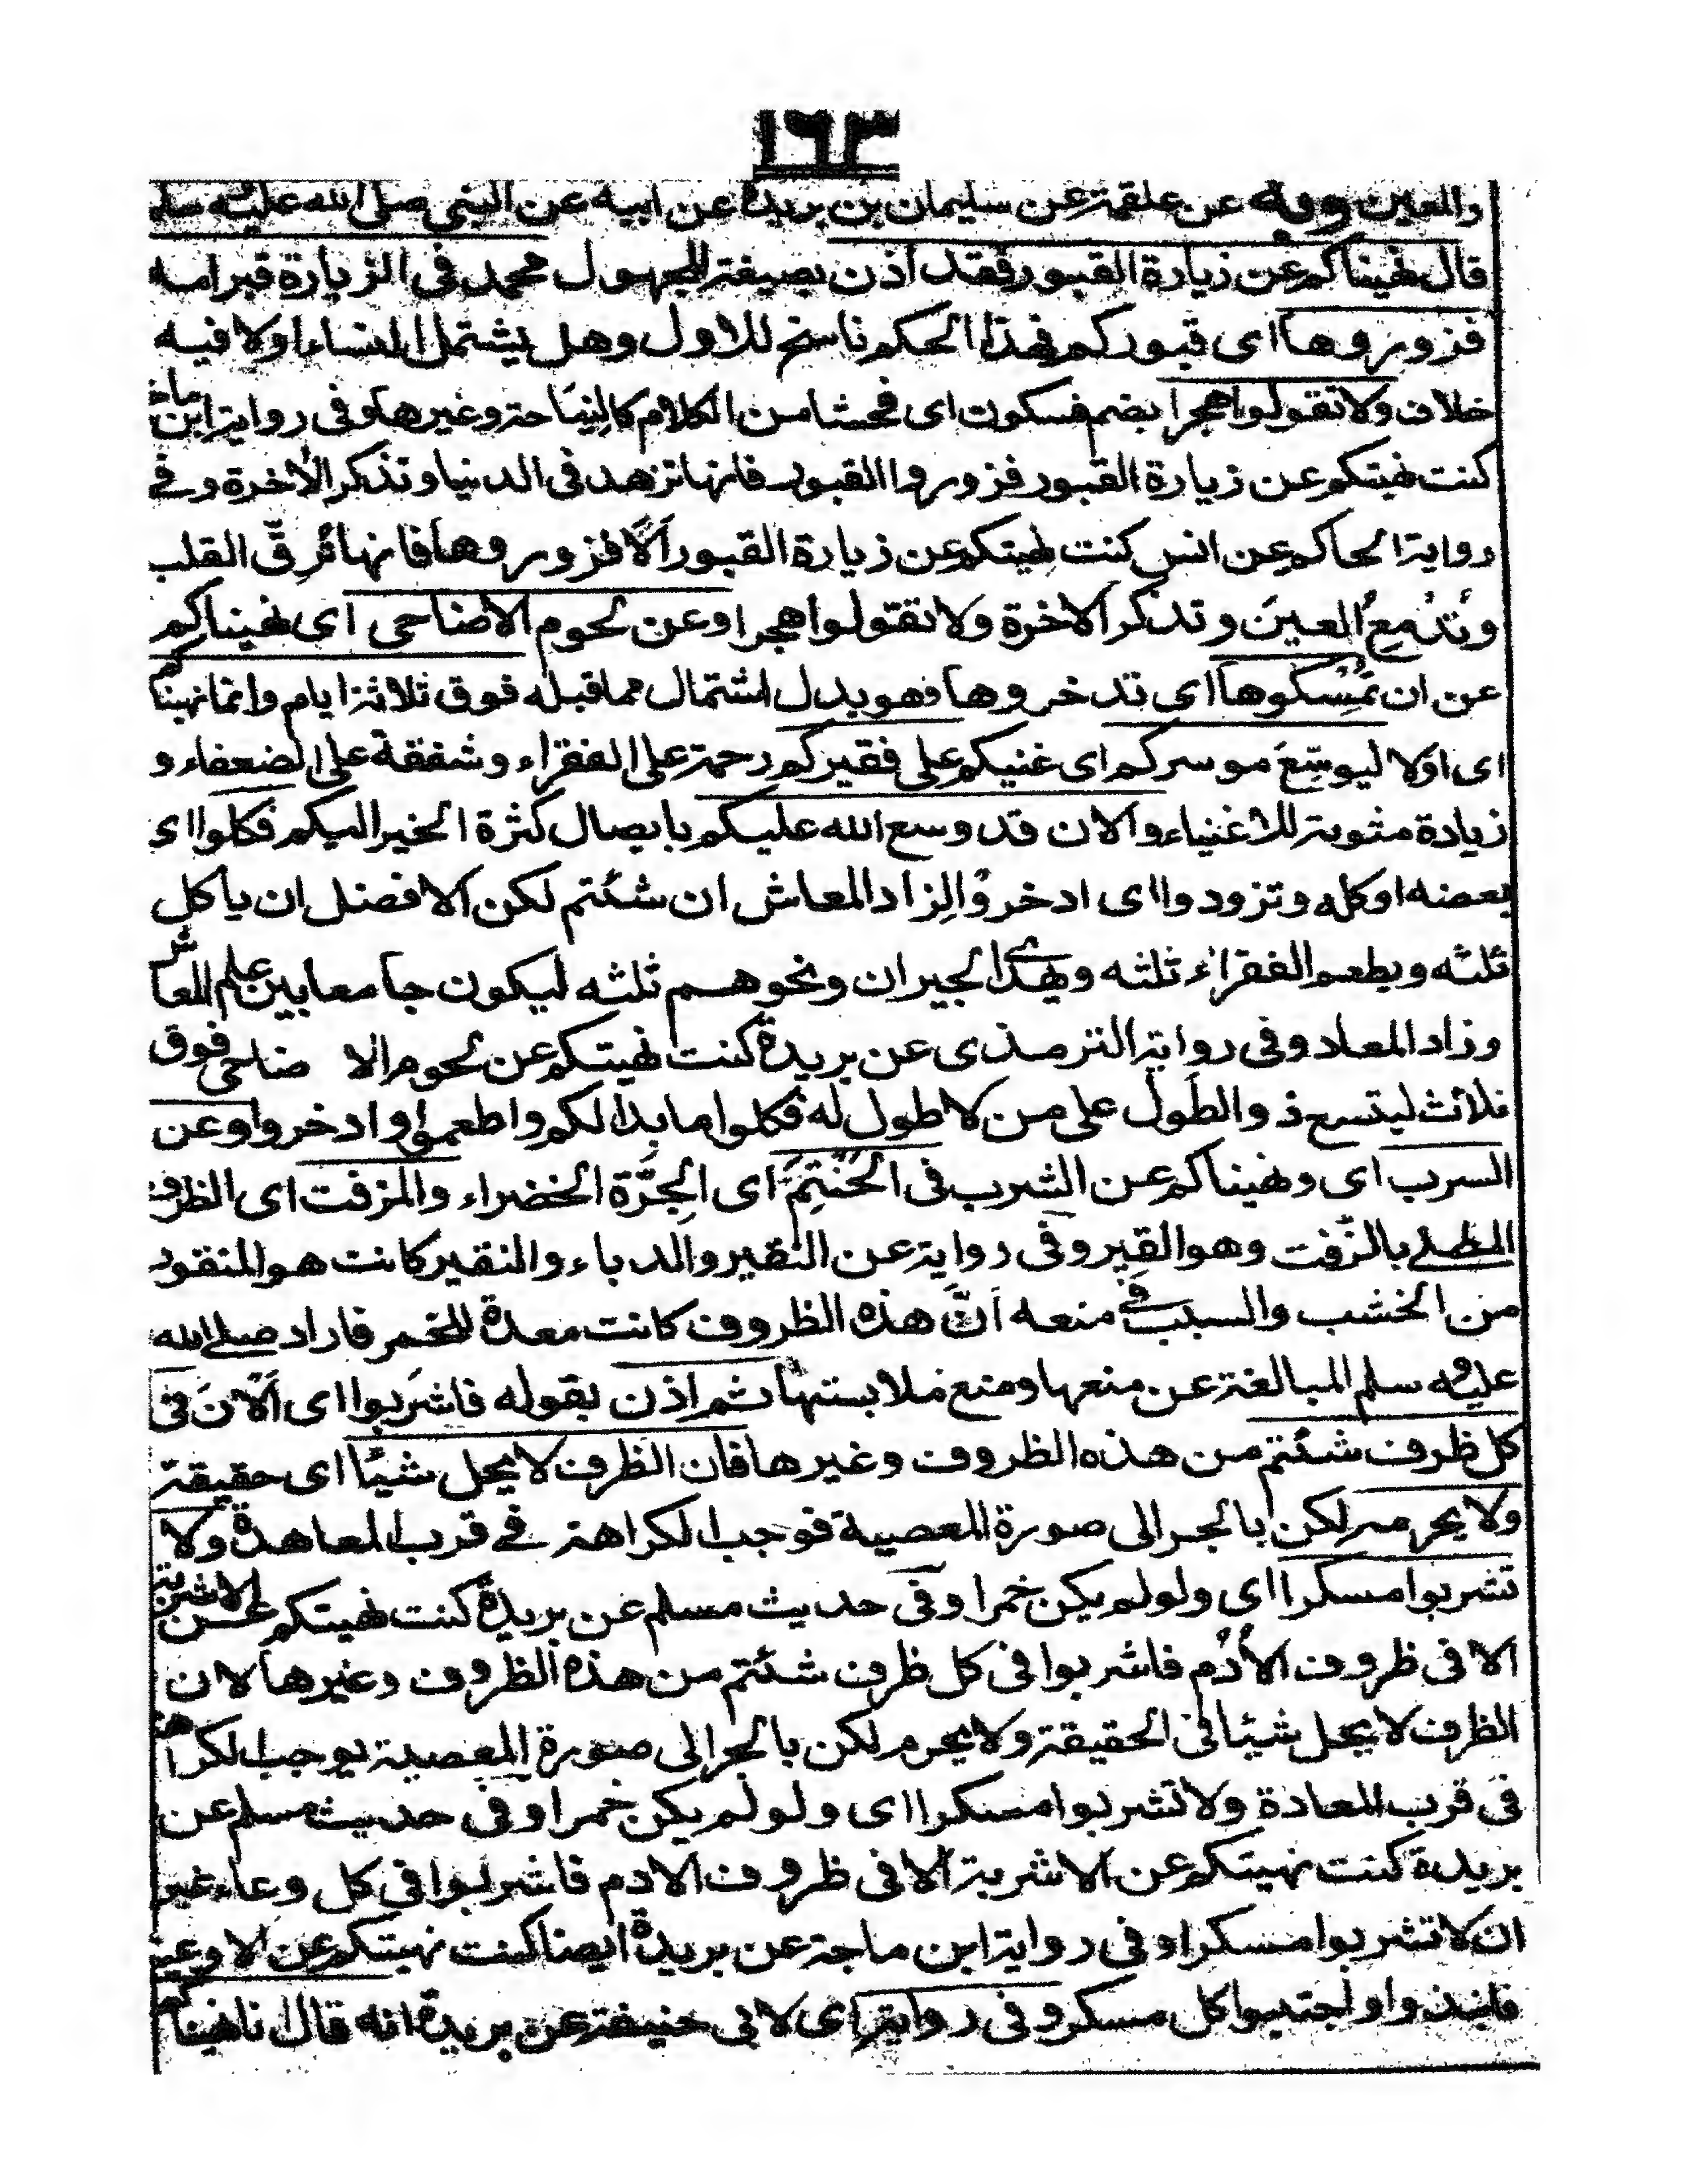 ١٦٣
والمعين وبه عن علقمة عن سليمان بن بريدة عن ابيه عن النبي صلى الله عليه وسلم
قال نهيناكم عن زيارة القبور فقد اذن بصيغة المجهول محمد في الزيارة قبر امه
فزوروها اى قبوركم فهذا الحكم ناسخ للاول وهل يشتمل النساء اولا فيه
خلاف ولا تقولوا هجرا بضم فسكون اى فحشا من الكلام كالنياحة وغيرها وفى رواية ابن ماجة
كنت نهيتكم عن زيارة القبور فزوروا القبور فانها تزهد فى الدنيا وتذكر الأخرة وفى
رواية الحاكم عن انس كنت نهيتكم عن زيارة القبور ألا فزوروها فانها تُرِقّ القلب
وتُدْمِعُ العينَ وتذكر الاخرة ولا تقولوا هجرا وعن لحوم الاضاحى اى نهيناكم
عن ان تُمْسِكوها اى تدخروها فهو بدل اشتمال مما قبله فوق ثلاثة ايام وانما نهيناكم
اى اولا ليوسِّعَ موسركم اى غنيكم على فقيركم رحمة على الفقراء وشفقة على الضعفاء و
زيادة مثوبة للاغنياء والان قد وسع الله عليكم بايصال كثرة الخير اليكم فكلوا اى
بعضه او كله وتزودوا اى ادخروا لِزاد المعاش ان شئتم لكن الافضل ان ياكل
ثلثه ويطعم الفقراء ثلثه ويهدى الجيران ونحوهم ثلثه ليكون جامعا بين علم المعاش
وزاد المعاد وفى رواية الترمذى عن بريدة كنت نهيتكم عن لحوم الا ضاحى فوق
ثلاث ليتسع ذو الطَول على من لا طول له فكلوا ما بدا لكم واطعموا وادخروا وعن
السرب اى ونهيناكم عن الشرب فى الحَنْتَمِ اى الجِرَّة الخضراء والمزفت اى الظرف
المطلى بالزّفت وهو القير وفى رواية عن النقير والدباء والنقير كانت هو المنقور
من الخشب والسبب فى منعه اَنَّ هذه الظروف كانت معدة للخمر فاراد صلى الله
عليه وسلم المبالغة عن منعها ومنع ملابستها ثم اذن بقوله فاشربوا اى اَلْانَ فى
كل ظرف شئتم من هذه الظروف وغيرها فان الظرف لا يحل شيئا اى حقيقة
ولا يحرمه لكن بالجر الى صورة المعصية فوجب الكراهة فى قرب المعاهدة ولا
تشربوا مسكرا اى ولو لم يكن خمرا وفى حديث مسلم عن بريدة كنت نهيتكم عن الاشربة
الا فى ظروف الأدُم فاشربوا فى كل ظرف شئتم من هذه الظروف وغيرها لان
الظرف لا يحل شيئا فى الحقيقة ولا يحرم لكن بالجر الى صورة المعصية يوجب الكراهة
فى قرب المعادة ولا تشربوا مسكرا اى ولو لم يكن خمرا وفى حديث مسلم عن
بريدة كنت نهيتكم عن الاشربة الا فى ظروف الادم فاشربوا فى كل وعاء غير
ان لا تشربوا مسكرا وفى رواية ابن ماجة عن بريدة ايضا كنت نهيتكم عن الاوعية
فانبذوا واجتنبوا كل مسكر وفى رواية اى لابى حنيفة عن بريدة انه قال نا نهيناكم